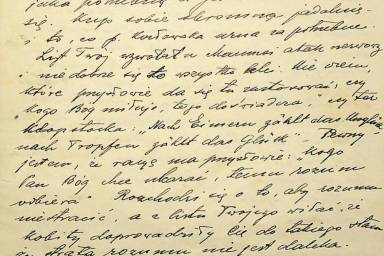 jaka
się. Kup sobie skromną jadalnię
i to, co p. uzna za potrzebne.
List Twój wywołał u Mamusi atak nerwowy
i niedobrze się to wszystko klei. Nie wiem,
które przysłowie da się tu zastosować, czy
"Kogo Bóg miłuje, tego doświadcza", czy też
Klopstocka: "Nach Eimern zählt das Unglück,
nach Tropfen zählt das Glück". Pewny
jestem, że rację ma przysłowie: "Kogo
Pan Bóg chce ukarać, temu rozum
odbiera". Rozchodzi się o to, aby rozumu
nie stracić, a z listu Twojego widać, że
kobiety doprowadziły Cię do takiego stanu
że strata rozumu nie jest daleka.